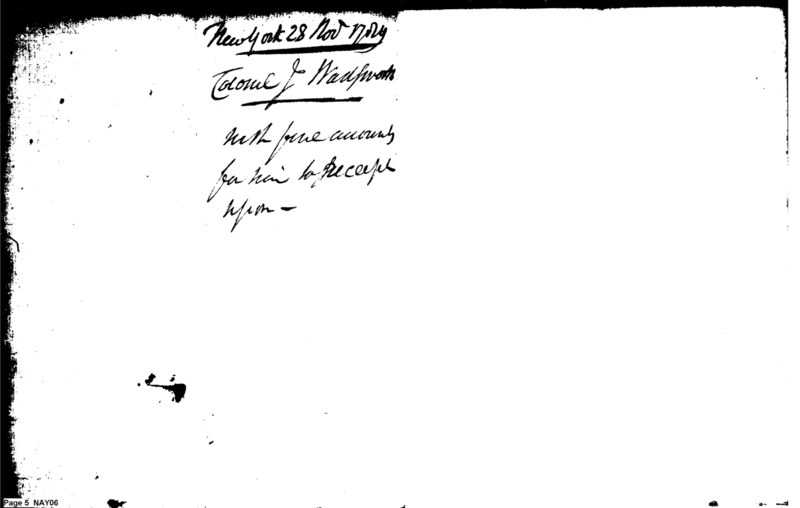 New York 28 Nov 1784
Colonel J Wadsworth
with four accounts
for him to Receipt
upon —
Page 5 NAY06